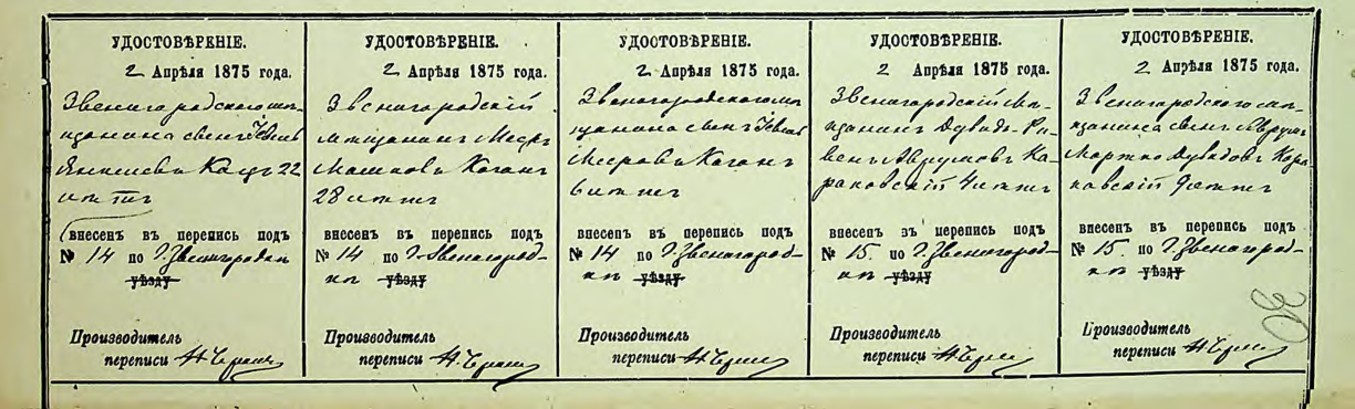 УДОСТОВѢРЕНІЕ.
2 Апрѣля 1875 года.
Звенигородского мѣ-
щанина сынъ
Кацъ 22
лѣтъ
внесенъ въ перепись подъ
№ 14 по г. Звенигородки
уѣзду
Производитель
переписи
УДОСТОВѢРЕНІЕ.
2 Апрѣля 1875 года.
Звенигородскій
мѣщанинъ Мееръ
Мошковъ Коганъ
28 лѣтъ
внесенъ въ перепись подъ
№ 14 по г. Звенигород-
кѣ уѣзду
Производитель
переписи
УДОСТОВѢРЕНІЕ.
2 Апрѣля 1875 года.
Звенигородского мѣ
щанина сынъ
Мееровъ Коганъ
6 лѣтъ
внесенъ въ перепись подъ
№ 14 по г. Звенигород-
кѣ уѣзду
Производитель
переписи
УДОСТОВѢРЕНІЕ.
2 Апрѣля 1875 года.
Звенигородскій мѣ-
щанинъ Дувидъ-Ру-
венъ Аврумовъ Ка-
раковскій 4 лѣтъ
внесенъ въ перепись подъ
№ 15 по г. Звенигород-
кѣ уѣзду
Производитель
переписи
УДОСТОВѢРЕНІЕ.
2 Апрѣля 1875 года.
Звенигородского мѣ-
щанина сынъ Аврумъ
Мортко Дувидовъ Кара-
ковскій 9 лѣтъ
внесенъ въ перепись подъ
№ 15. по г. Звенигород-
кѣ уѣзду
Производитель
переписи